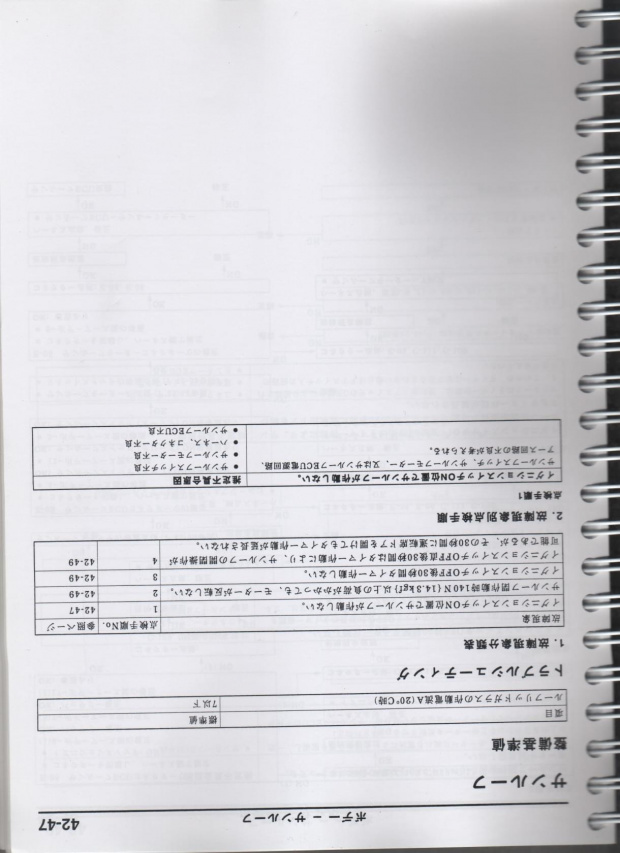 ボデー － サンルーフ 42-47
サンルーフ
整備基準値
項目 標準値
ルーフリッドガラスの作動電流A (20°C時) 7以下
トラブルシューティング
1. 故障現象分類表
故障現象 点検手順No. 参照ページ
イグニションスイッチON位置でサンルーフが作動しない。 1 42-47
サンルーフ閉作動時140N {14.3kgf} 以上の負荷がかかっても、モーターが反転しない。 2 42-49
イグニションスイッチOFF後30秒間タイマー作動しない。 3 42-49
イグニションスイッチOFF直後30秒間はタイマー作動により、サンルーフの開閉操作が
可能であるが、その30秒間に運転席ドアを開けてもタイマー作動が延長されない。 4 42-49
2. 故障現象別点検手順
点検手順1
イグニションスイッチON位置でサンルーフが作動しない。 推定不具合原因
サンルーフスイッチ、サンルーフモーター、又はサンルーフECU電源回路、
アース回路の不良が考えられる。
● サンルーフスイッチ不良
● サンルーフモーター不良
● ハーネス、コネクター不良
● サンルーフECU不良